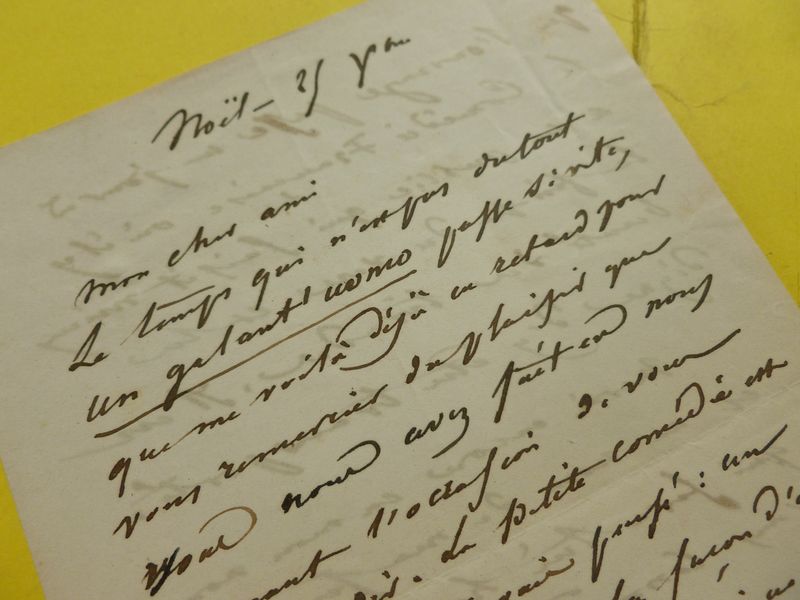 Noël - 25 Xbre
mon cher ami
Le temps qui n'est pas du tout
un galant'uomo passe si vite,
que me voilà déjà en retard pour
vous remercier du plaisir que
vous nous avez fait en nous
l'occasion de vous
La petite comédie est
pensé : un
la façon d'